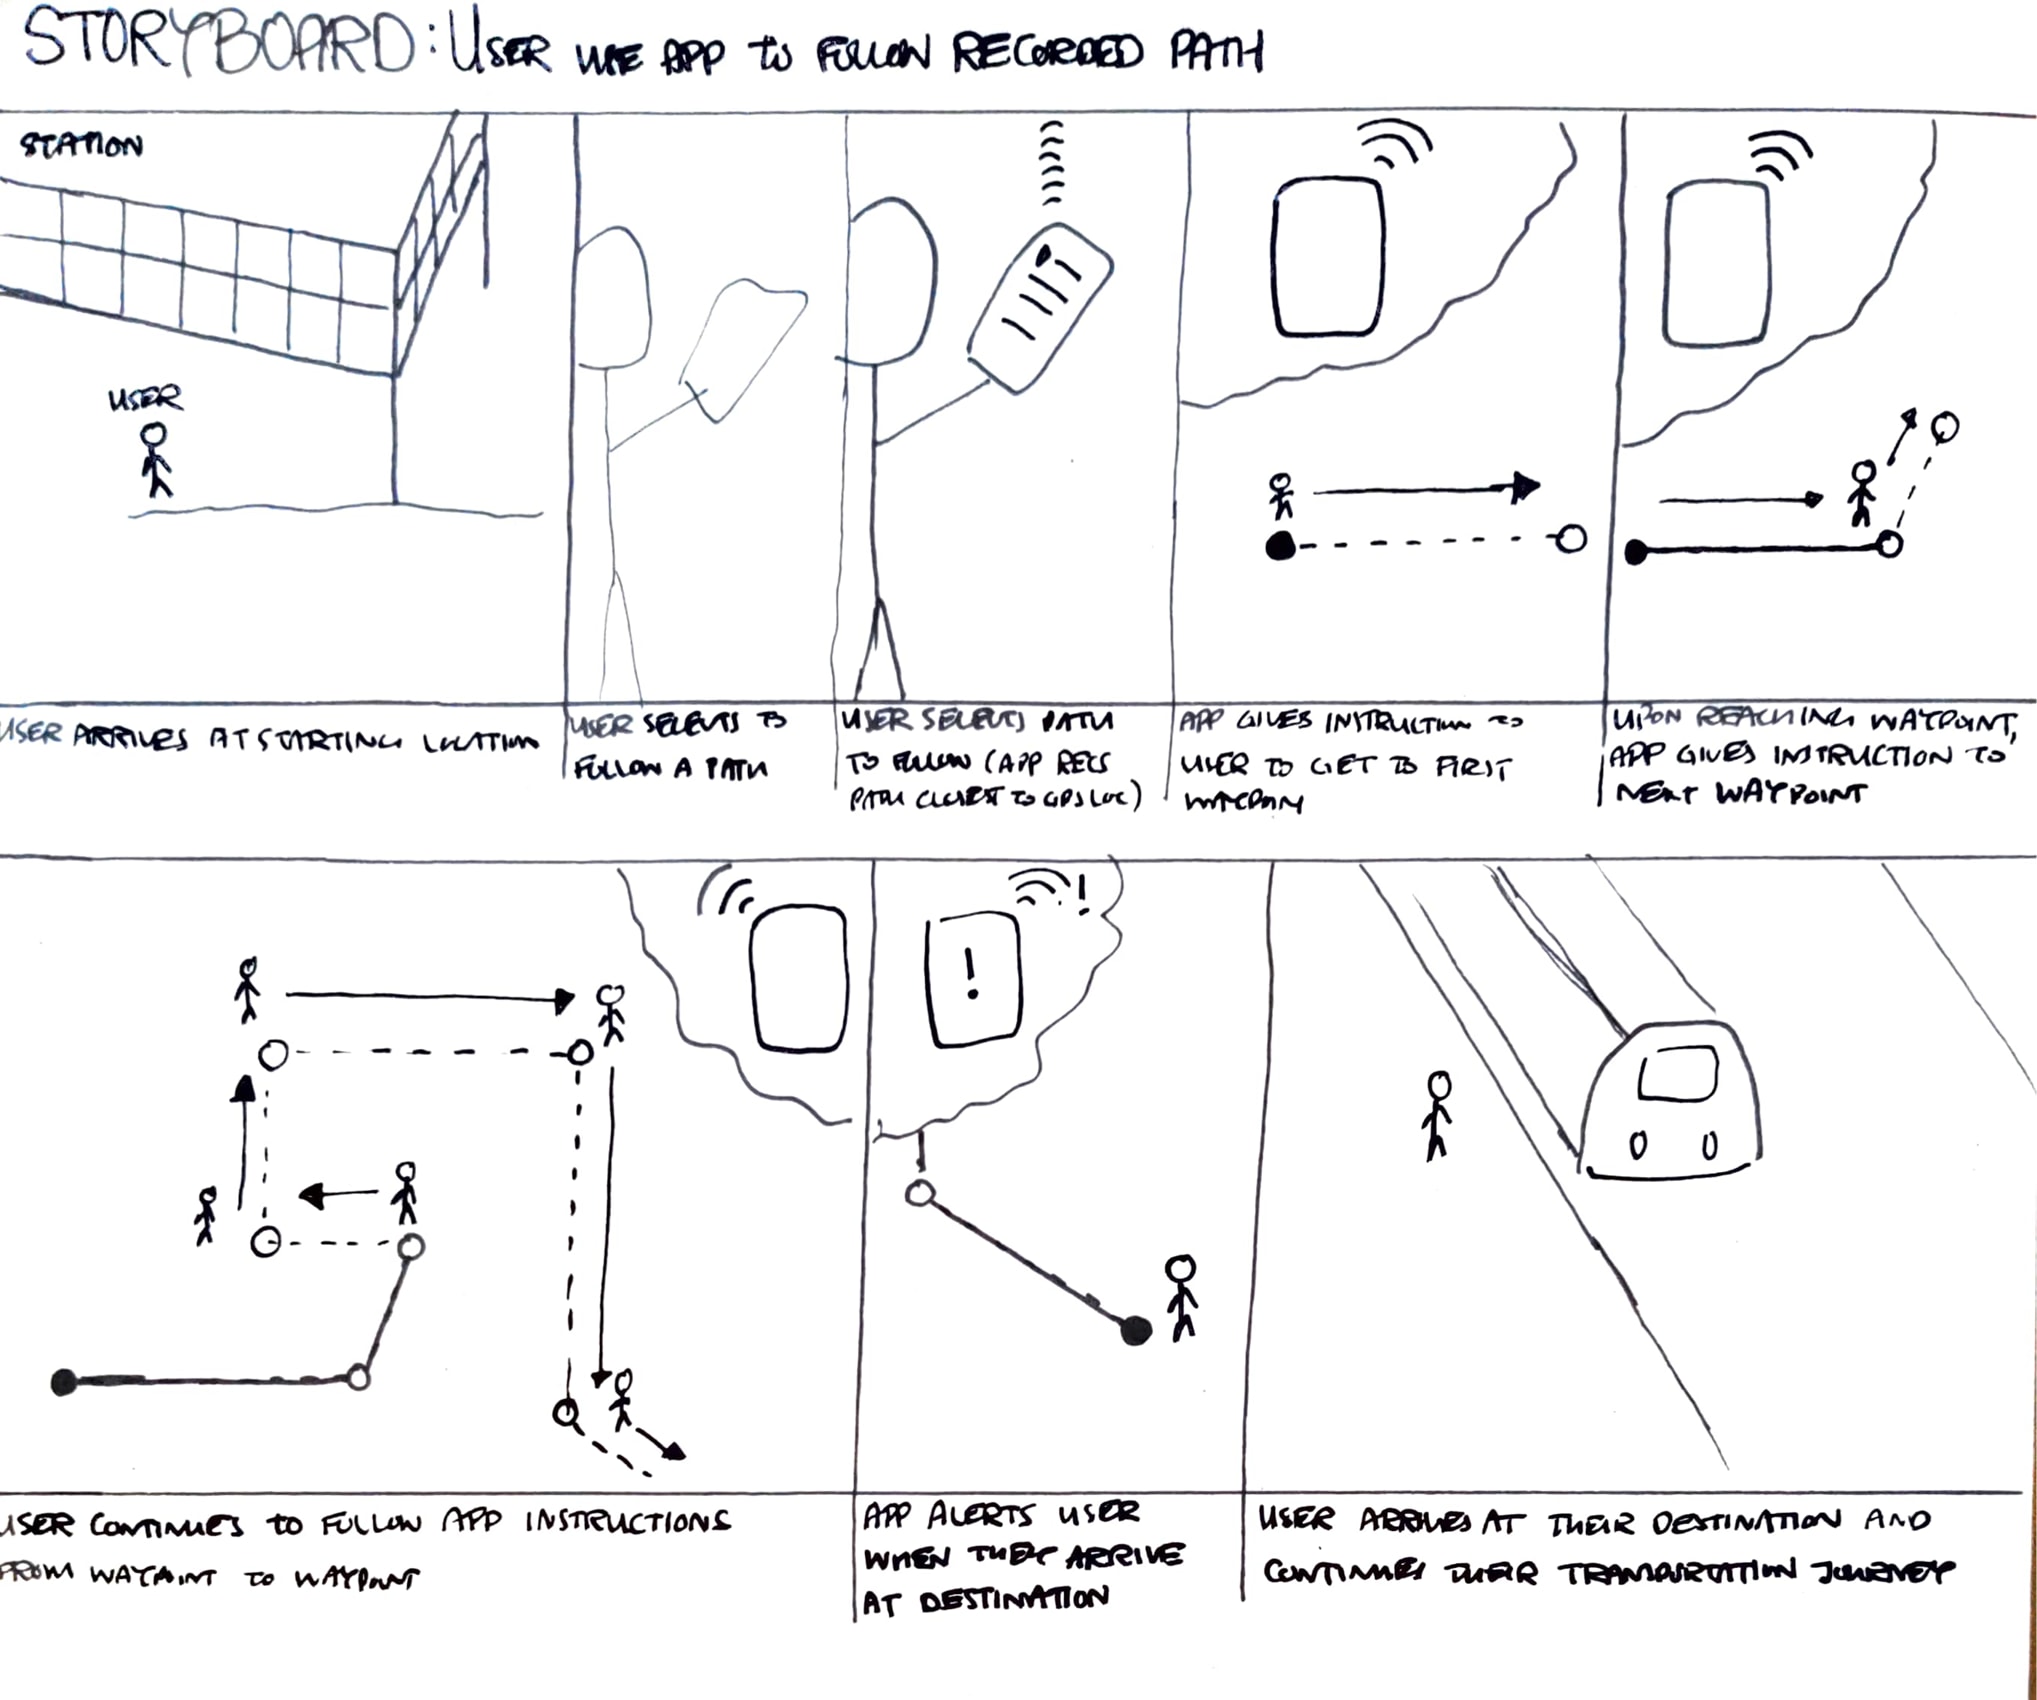 STORYBOARD: USER USE APP TO FOLLOW RECORDED PATH
STATION
USER
USER ARRIVES AT STARTING LOCATION
USER SELECTS TO
FOLLOW A PATH
USER SELECTS PATH
TO FOLLOW (APP RECS
PATH CLOSEST TO GPS LOC)
APP GIVES INSTRUCTION TO
USER TO GET TO FIRST
WAYPOINT
UPON REACHING WAYPOINT,
APP GIVES INSTRUCTION TO
NEXT WAYPOINT
!
!
USER CONTINUES TO FOLLOW APP INSTRUCTIONS
FROM WAYPOINT TO WAYPOINT
APP ALERTS USER
WHEN THEY ARRIVE
AT DESTINATION
USER ARRIVES AT THEIR DESTINATION AND
CONTINUES THEIR TRANSPORTATION JOURNEY